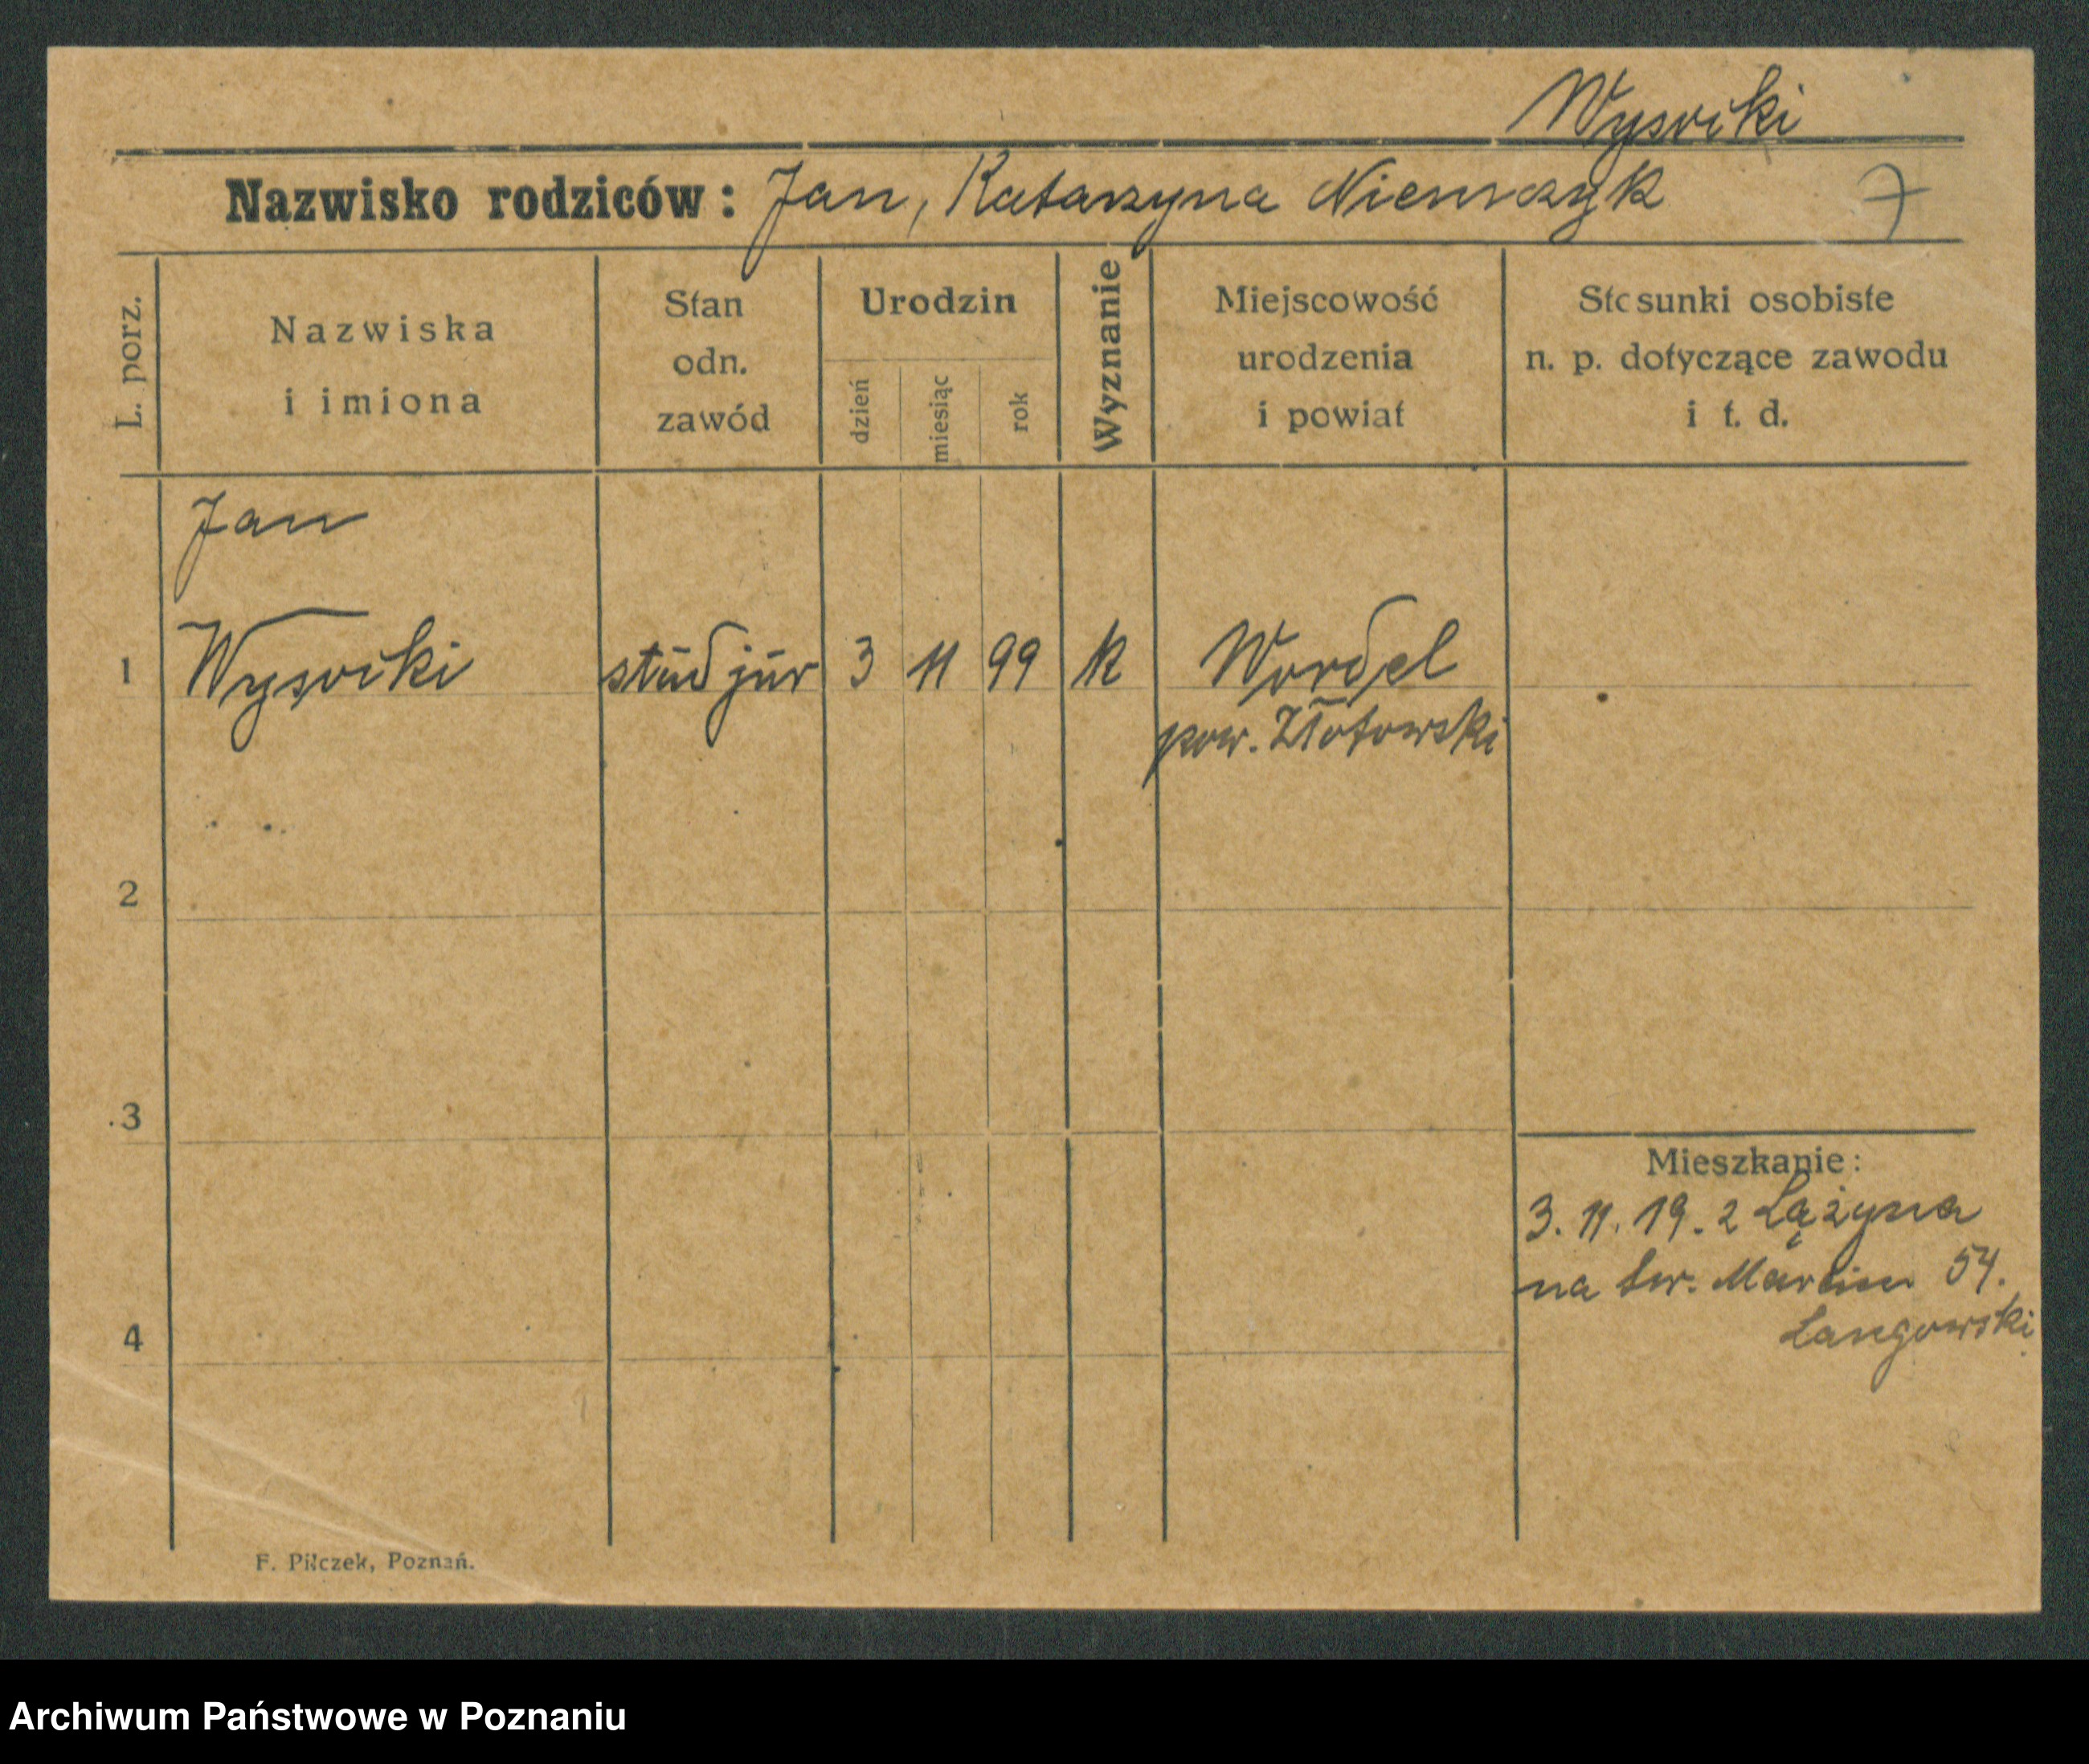 Wysocki
Nazwisko rodziców: Jan, Katarzyna Niemczyk
7
L. porz.
Nazwiska i imiona
Stan odn. zawód
Urodzin
dzień
miesiąc
rok
Wyznanie
Miejscowość urodzenia i powiat
Stosunki osobiste n. p. dotyczące zawodu i t. d.
Jan
1 Wysocki stud jur 3 11 99 k
pow. Złotowski
2
3
4
Mieszkanie:
3. 11. 19. z Łążyna
na Św. Marcin 54.
Langowski
F. Pilczek, Poznań.
Archiwum Państwowe w Poznaniu